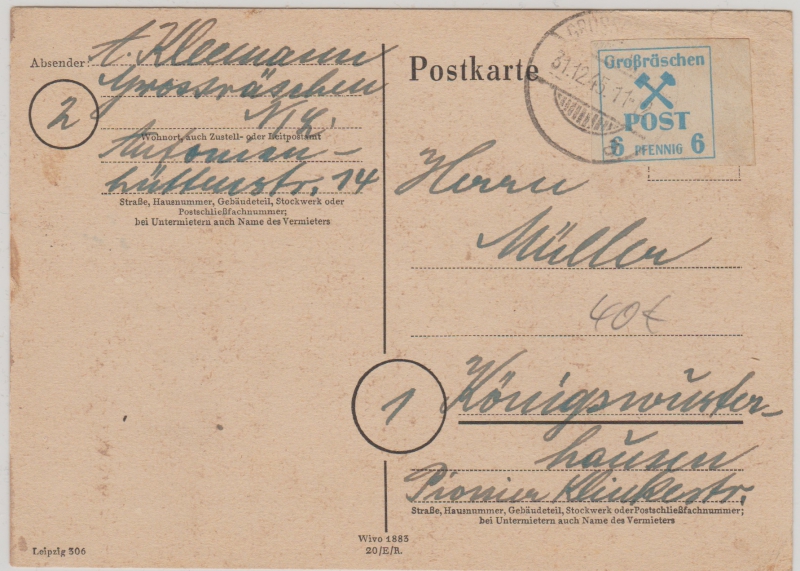 Absender: A. Kleemann
Grossräschen
2
N/L.
Wohnort, auch Zustell- oder Leitpostamt
hüttenstr. 14
Straße, Hausnummer, Gebäudeteil, Stockwerk oder
Postschließfachnummer;
bei Untermietern auch Name des Vermieters
Postkarte
31.12.45.11
Großräschen
POST
6 PFENNIG 6
Herrn
Müller
40€
1
Königswuster-
hausen
Pionier Klinkestr.
Straße, Hausnummer, Gebäudeteil, Stockwerk oder Postschließfachnummer;
bei Untermietern auch Name des Vermieters
Leipzig 306
Wivo 1885
20/E/R.